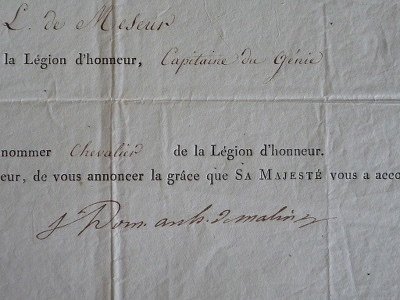 L. de Meseur
la Légion d'honneur, Capitaine du Génie
nommer Chevalier de la Légion d'honneur.
eur, de vous annoncer la grâce que SA MAJESTÉ vous a acco